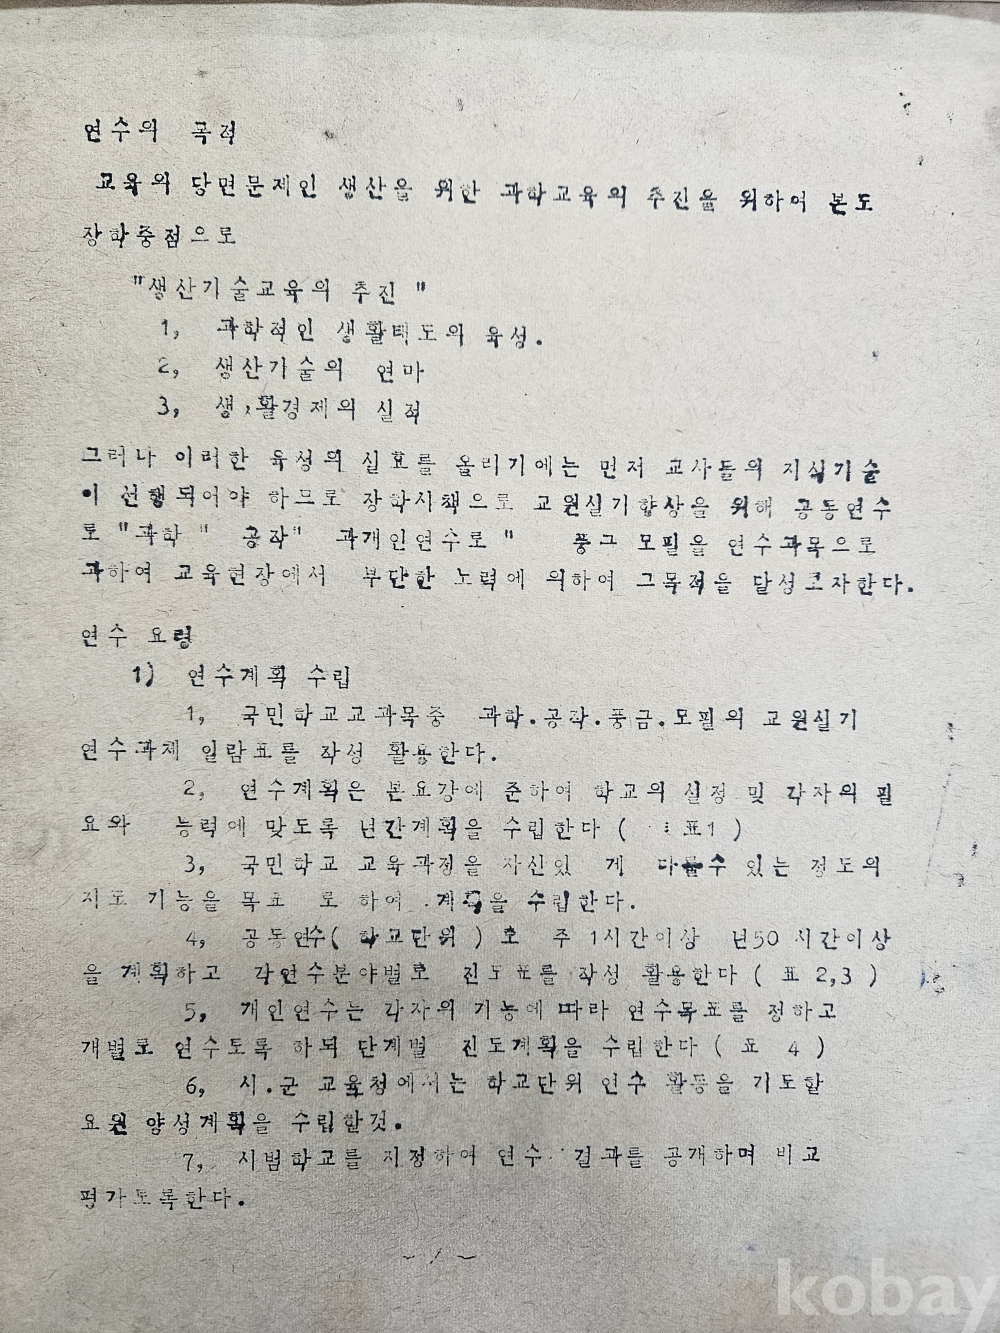 연수의 목적
교육의 당면문제인 생산을 위한 과학교육의 추진을 위하여 본도
장학중점으로
"생산기술교육의 추진 "
1, 과학적인 생활태도의 육성.
2, 생산기술의 연마
3, 생활경제의 실적
그러나 이러한 육성의 실효를 올리기에는 먼저 교사들의 지식기술
이 선행되어야 하므로 장학시책으로 교원실기향상을 위해 공동연수
로 "과학 " 공작" 과개인연수로 " 풍그 모필을 연수과목으로
과하여 교육현장에서 부단한 노력에 의하여 그목적을 달성고자한다.
연수 요령
1) 연수계획 수립
1, 국민학교교과목중 과학.공작.풍금.모필의 교원실기
연수과제 일람표를 작성 활용한다.
2, 연수계획은 본요강에 준하여 학교의 실정 및 각자의 필
요와 능력에 맞도록 년간계획을 수립한다 ( 표1 )
3, 국민학교 교육과정을 자신있 게 다룰수 있는 정도의
지도 기능을 목표 로 하여 계획을 수립한다.
4, 공동연수( 학교단위 ) 호 주 1시간이상 년50 시간이상
을 계획하고 각연수분야별로 진도표를 작성 활용한다 ( 표 2,3 )
5, 개인연수는 각자의 기능에 따라 연수목표를 정하고
개별로 연수토록 하되 단계별 진도계획을 수립한다 ( 표 4 )
6, 시.군 교육청에서는 학교단위 연수 활동을 기도할
요원 양성계획을 수립할것.
7, 시범학교를 지정하여 연수 결과를 공개하며 비교
평가토록한다.
~ 1 ~
kobay